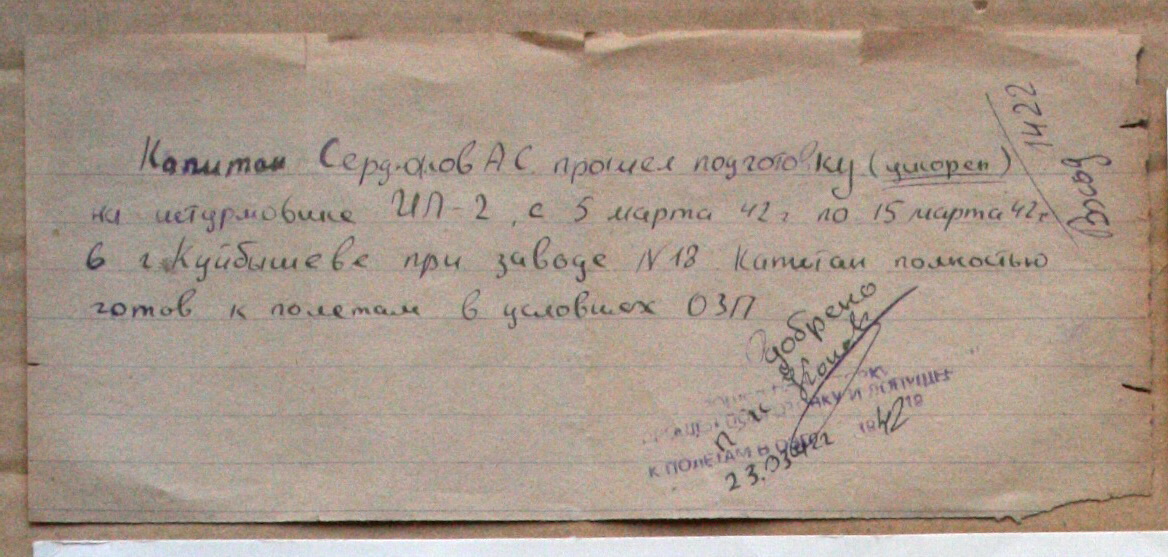 Капитан Сердюков А С прошел подготовку (ускорен)
на штурмовике ИЛ-2, с 5 марта 42 г по 15 марта 42 г.
в г. Куйбышеве при заводе N 18 Капитан полностью
готов к полетам в условиях ОЗП
1422
Одобрено
п-к
К ПОЛЕТАМ В
1942
23.03.42г